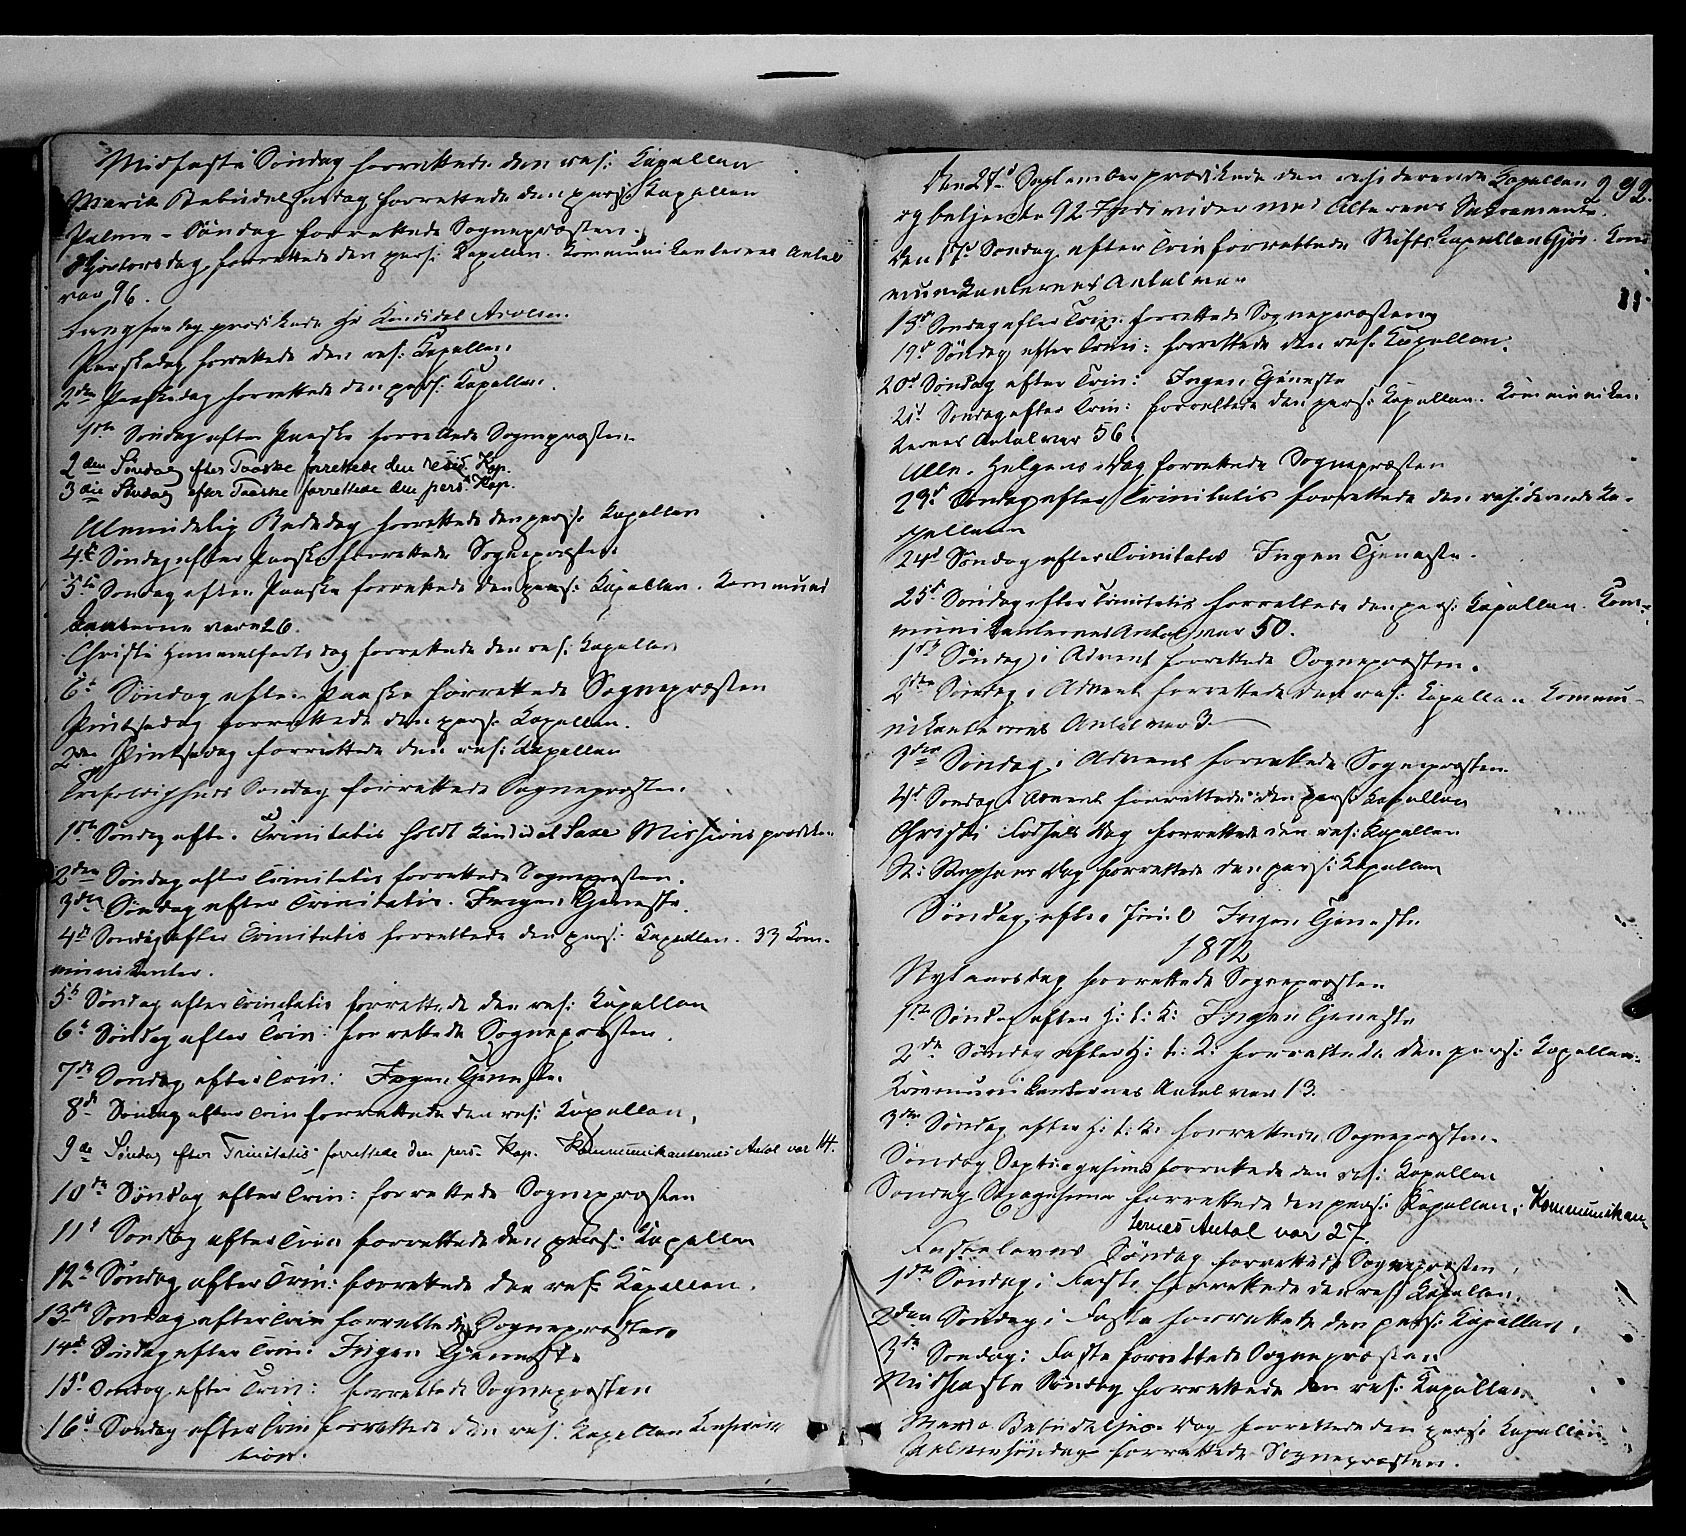 Midfaste Søndag forrettede den res: Kapellan
Mariæ Bebudelsesdag forrettede den pers: Kapellan
Palme-Søndag forrettede Sognepræsten.
Skjærtorsdag forrettede den pers: Kapellan. Kommunikanternes Antal
var 96.
Langfredag prædikede Hr Kandidat
Paaskedag forrettede den res: Kapellan.
2den Paaskedag forrettede den pers: Kapellan.
1ste Søndag efter Paaske forrettede Sognepræsten.
2den Søndag efter Paaske forrettede den resid. Kap.
3die Søndag efter Paaske forrettede den pers. Kap.
Almindelig Bededag forrettede den pers: Kapellan
4de Søndag efter Paaske forrettede Sognepræsten.
5te Søndag efter Paaske forrettede den pers: Kapellan. Kommuni
kanterne vare 26.
Christi Himmelfarts dag forrettede den res: Kapellan
6te Søndag efter Paaske forrettede Sognepræsten
Pintsedag forrettede den pers: Kapellan.
2den Pintsedag forrettede den res: Kapellan
Trefoldigheds Søndag forrettede Sognepræsten.
1ste Søndag efter Trinitatis holdt Kandidat Saxe Missionsprædiken
2den Søndag efter Trinitatis forrettede Sognepræsten.
3die Søndag efter Trinitatis. Ingen Tjeneste.
4de Søndag efter Trinitatis forrettede den pers: Kapellan. 33 Kom-
munikanter.
5te Søndag efter Trinitatis forrettede den res: Kapellan
6te Søndag efter Trin: forrettede Sognepræsten.
7de Søndag efter Trin: Ingen Tjeneste.
8de Søndag efter Trin forrettede den res: Kapellan.
9de Søndag efter Trinitatis forrettede den pers. Kap. Kommunikanternes Antal var 14.
10de Søndag efter Trin: forrettede Sognepræsten
11te Søndag efter Trin forrettede den pers: Kapellan
12te Søndag efter Trin: forrettede den res: Kapellan.
13de Søndag efter Trin forrettede Sognepræsten
14de Søndag efter Trin. Ingen Tjeneste
15de Søndag efter Trin: forrettede Sognepræsten
16de Søndag efter Trin forrettede den res: Kapellan Konfirma
tion.
292.
Den 27de September prædikede den residerende Kapellan
og betjente 92 Individer med Alterens Sakramente.
Den 17de Søndag efter Trin forrettede Stiftskapellan Gjør. Kom
munikanternes Antal var 11
18de Søndag efter Trin. forrettede Sognepræsten
19de Søndag efter Trin: forrettede den res. Kapellan.
20de Søndag efter Trin: Ingen Tjeneste
21de Søndag efter Trin: forrettede den pers: Kapellan. Kommunikan
ternes Antal var 56.
Alle Helgens Dag forrettede Sognepræsten
23de Søndag efter Trinitatis forrettede den residerende Ka-
pellan
24de Søndag efter Trinitatis Ingen Tjeneste.
25de Søndag efter Trinitatis forrettede den pers: Kapellan. Kom-
munikanternes Antal var 50.
1ste Søndag i Advent forrettede Sognepræsten.
2den Søndag i Advent forrettede den res: Kapellan Kommu-
nikanternes Antal var 3
3die Søndag i Advent forrettede Sognepræsten
4de Søndag i Advent forrettede den pers: Kapellan
Christi Fødsels Dag forrettede den res: Kapellan
St: Stephans Dag forrettede den pers: Kapellan
Søndag efter Juul Ingen Tjeneste
1872
Nytaarsdag forrettede Sognepræsten
1ste Søndag efter H: t: K: Ingen Tjeneste
2den Søndag efter H: t: K: forrettede den pers: Kapellan.
Kommunikanternes Antal var 13.
3die Søndag efter H: t: K: forrettede Sognepræsten.
Søndag Septuagesima forrettede den res: Kapellan
Søndag Sexagesima forrettede den pers: Kapellan. Kommunikan
ternes Antal var 27.
Fastelavns Søndag forrettede Sognepræsten.
1ste Søndag i Faste forrettede den res: Kapellan.
2den Søndag i Faste forrettede den pers: Kapellan.
3die Søndag i Faste forrettede Sognepræsten
Midfaste Søndag forrettede den res: Kapellan.
Mariæ Bebudelses Dag forrettede den pers: Kapellan
Palmesøndag forrettede Sognepræsten.